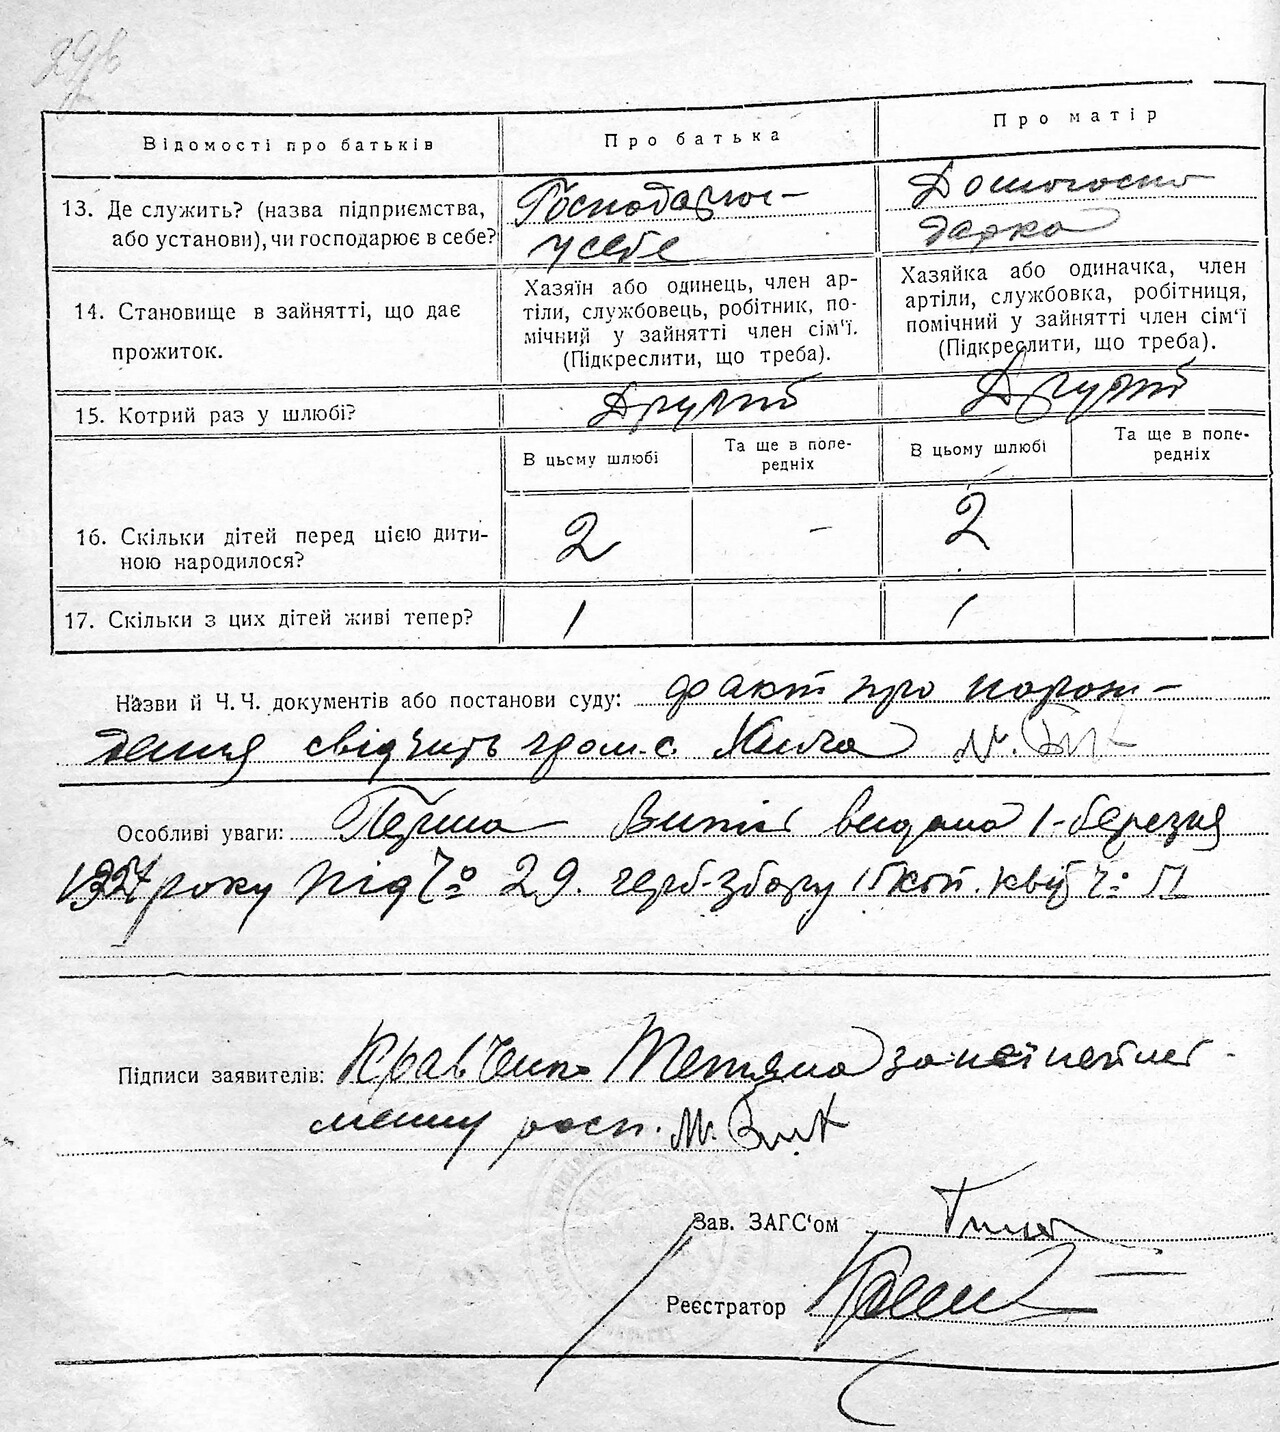 Відомості про батьків
Про батька
Про матір
13. Де служить? (назва підприємства,
або установи), чи господарює в себе?
Господарює
у себе
Домогоспо
дарка
14. Становище в зайнятті, що дає
прожиток.
Хазяїн або одинець, член ар-
тіли, службовець, робітник, по-
мічний у зайнятті член сім'ї.
(Підкреслити, що треба).
Хазяйка або одиначка, член
артіли, службовка, робітниця,
помічний у зайнятті член сім'ї
(Підкреслити, що треба).
15. Котрий раз у шлюбі?
Другий
Другий
В цьому шлюбі
Та ще в попе-
редніх
В цьому шлюбі
Та ще в попе-
редніх
16. Скільки дітей перед цією дити-
ною народилося?
2
–
2
17. Скільки з цих дітей живі тепер?
1
1
Назви й Ч. Ч. документів або постанови суду: факт про нарож-
дення свідчить гром. с. М. Бик
Особливі уваги: Перша видана 1-березня
року під Ч° 29. герб-збору коп. квит Ч°
Підписи заявителів: Кравченко Тетяна за неї неписьменну
расп. М. Бик
Зав. ЗАГС'ом
Реєстратор